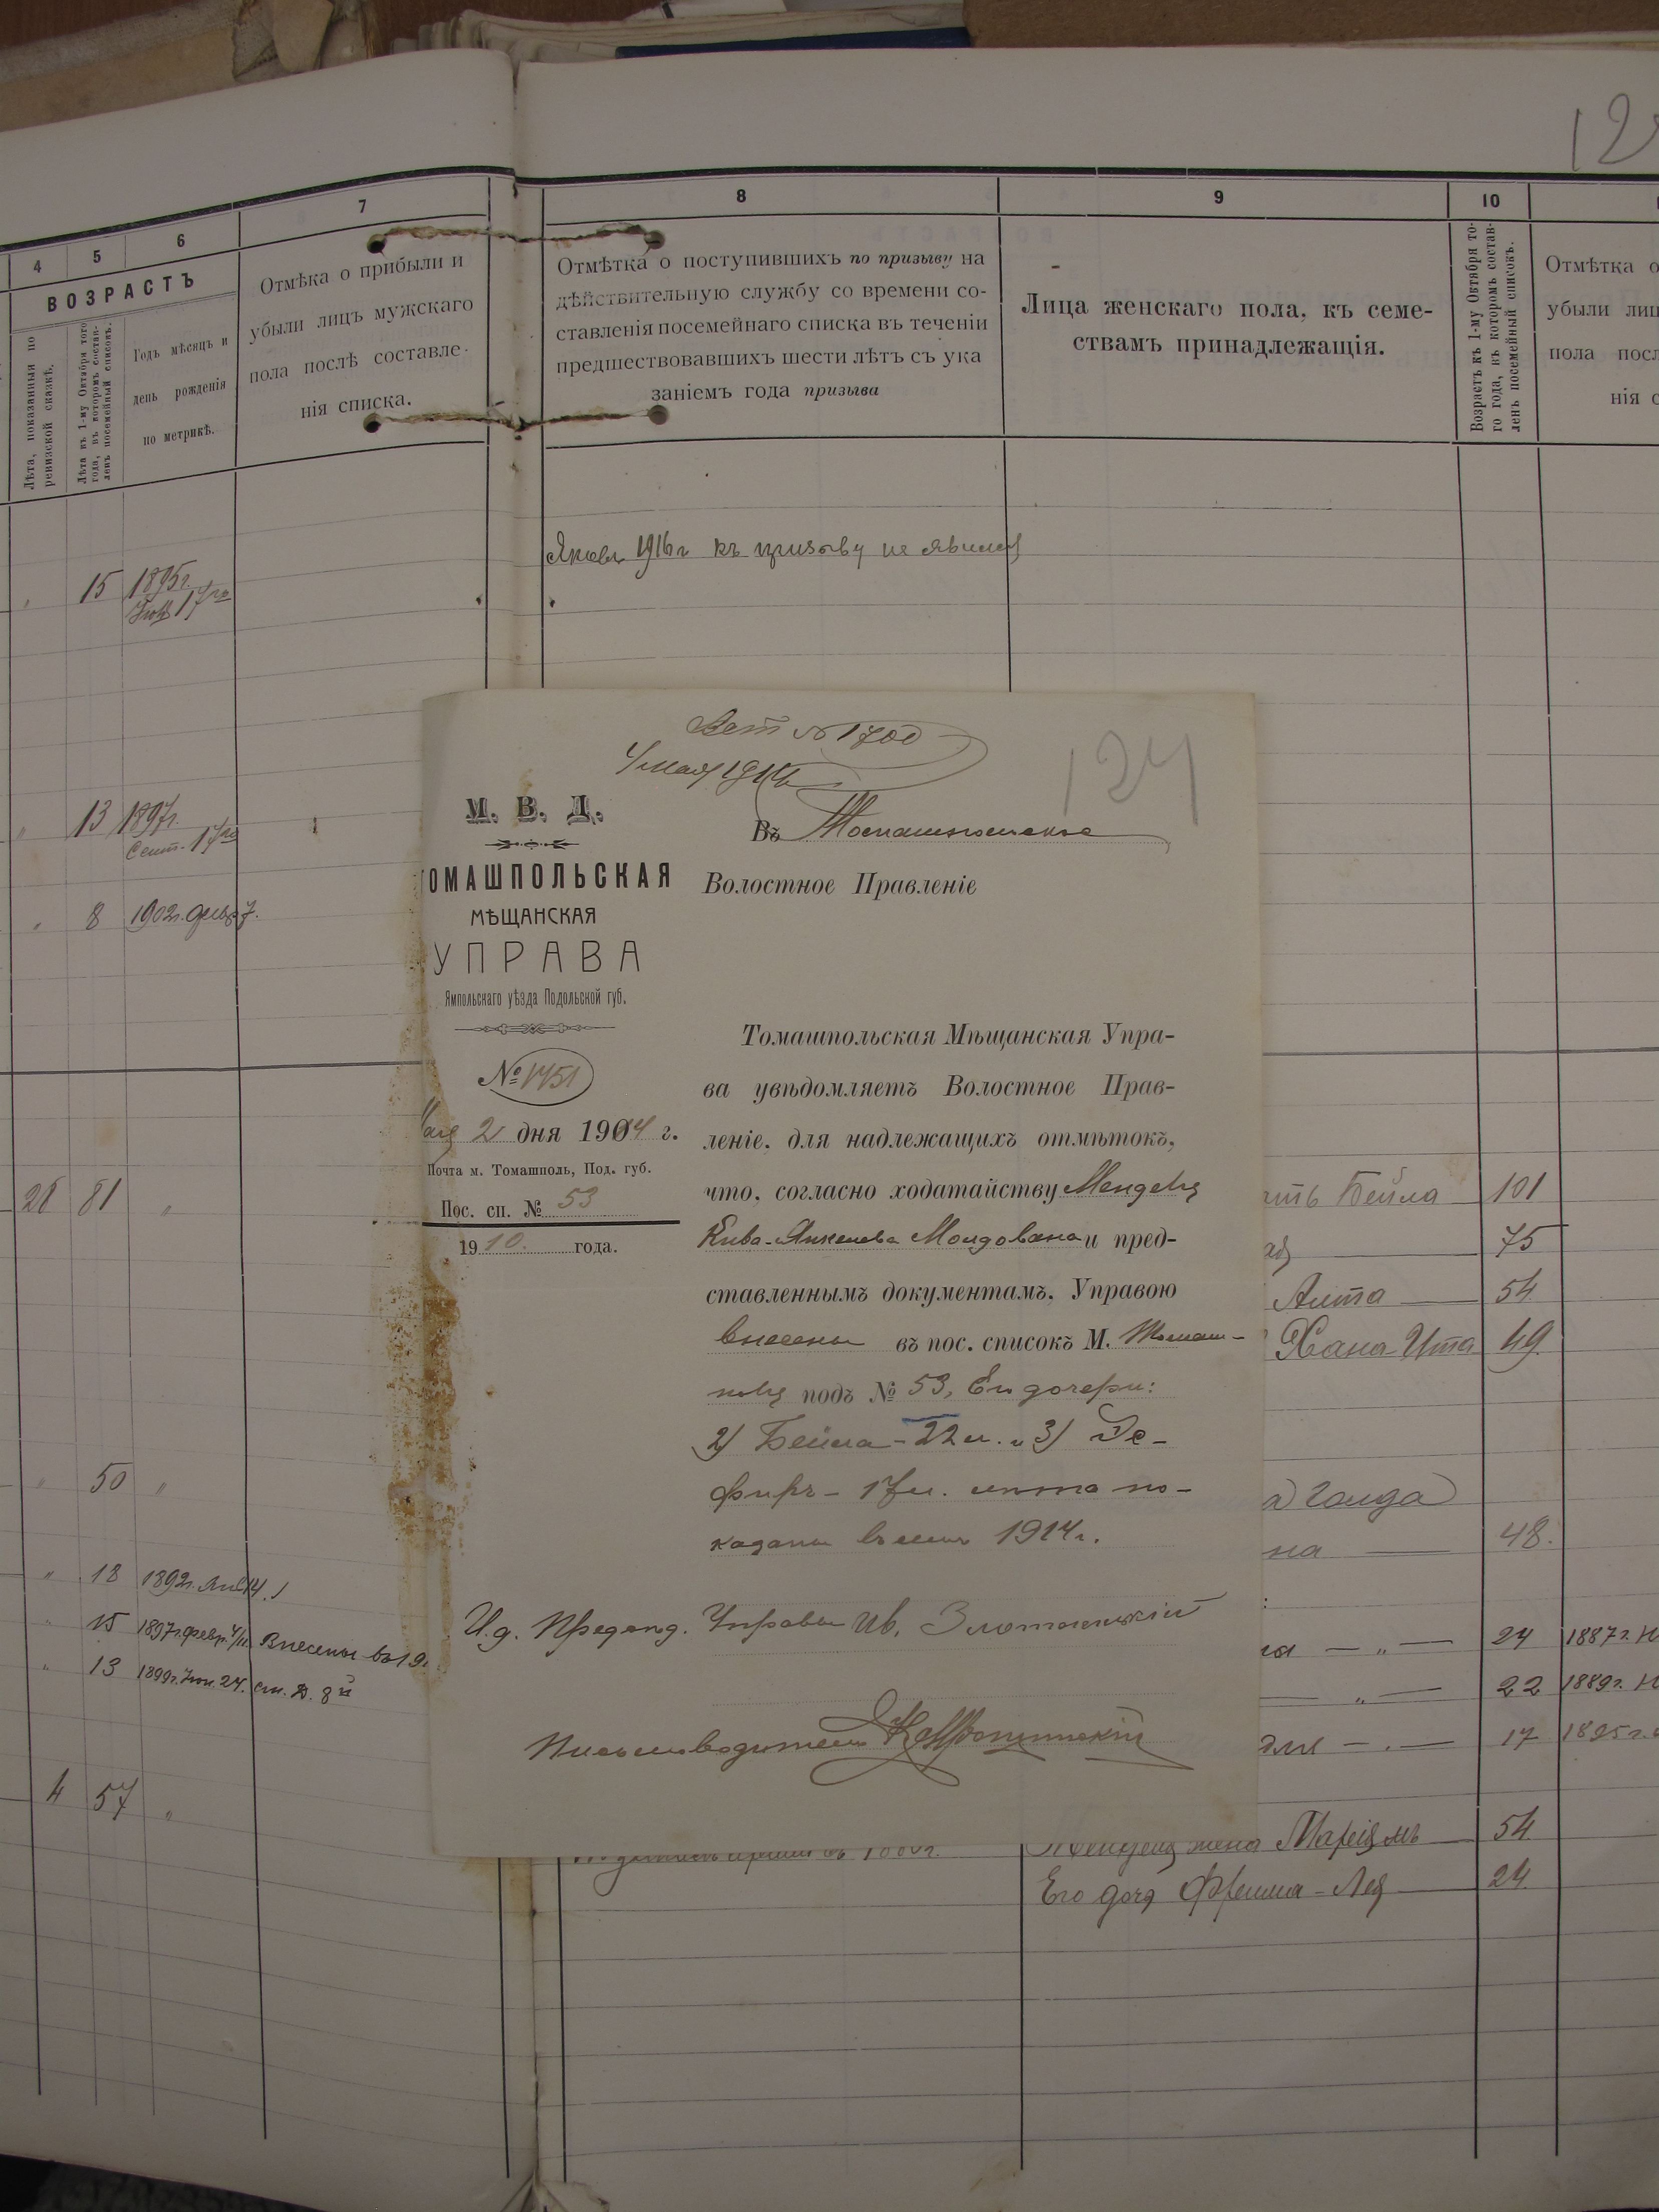 12
4
5
6
7
ВОЗРАСТЪ
Лѣта, показанныя по
ревизской сказкѣ.
Лѣта къ 1-му Октября того
года, въ которомъ состав-
ленъ посемейный списокъ.
Годъ мѣсяцъ и
день рожденія
по метрикѣ.
Отмѣка о прибыли и
убыли лицъ мужскаго
пола послѣ составле-
нія списка.
15 1895г.
17го
13 1897г.
Сент. 17го
8 1902г. 7.
28 81 "
" 50 "
" 18 1892г. 14.
" 15 1897г. февр. 4/11 Внесены въ 19
" 13 1899г. 24. ст. Д. 8й
4 57 "
8
9
10
Отмѣтка о поступившихъ по призыву на
дѣйствительную службу со времени со-
ставленія посемейнаго списка въ теченіи
предшествовавшихъ шести лѣтъ съ ука
заніемъ года призыва
Лица женскаго пола, къ семе-
ствамъ принадлежащія.
Возрастъ къ 1-му Октября то-
го года, въ которомъ состав-
ленъ посемейный списокъ.
Отмѣтка о
убыли лиц
пола посл
нія с
1916г къ призыву не явился
124
№ 1700
4 мая 1914
М. В. Д.
ОМАШПОЛЬСКАЯ
МѢЩАНСКАЯ
УПРАВА
Ямпольскаго уѣзда Подольской губ.
№ 1451
ая 2 дня 1904 г.
Почта м. Томашполь, Под. губ.
Пос. сп. № 53
1910. года.
Въ Томашпольское
Волостное Правленіе
Томашпольская Мѣщанская Упра-
ва увѣдомляетъ Волостное Прав-
леніе, для надлежащихъ отмѣтокъ,
что, согласно ходатайству Менделя
Кива-Янкелева Молдована и пред-
ставленнымъ документамъ, Управою
внесены въ пос. списокъ М. Томаш-
поля подъ № 53, Его дочери:
2) Бейла - 22 л. и 3) Эс-
фирь - 17 л. лѣта по-
казаны къ 1914г.
И.д. Предсѣд. Управы Ив.
Письмоводитель
ать Бейла 101
75
Алта 54
Хана-Ита 49.
Голда
на 48.
24 1887г. Н
22 1889г. Н
17 1895г.
Менделя жена Маріямъ 54
Его дочь Фрейма-Лея 24